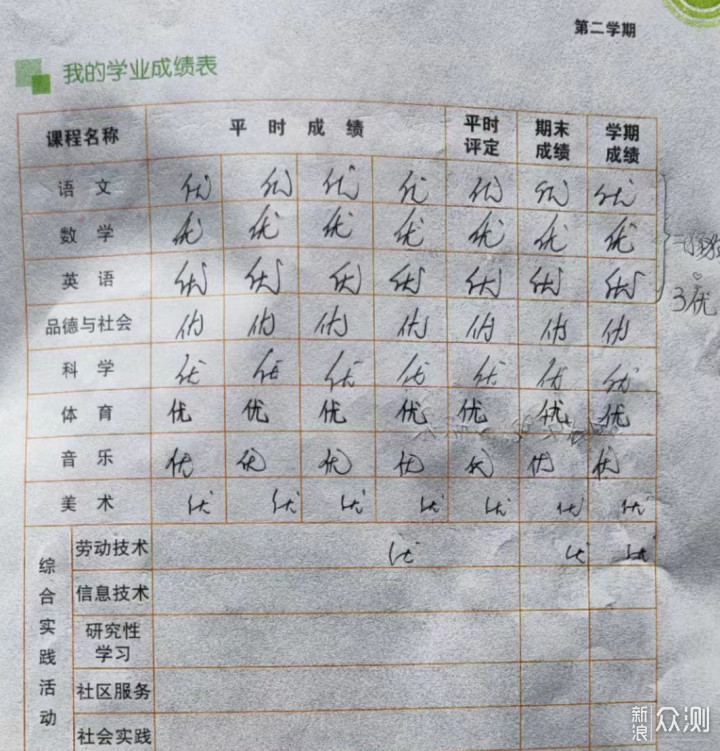 第二学期
我的学业成绩表
课程名称 平时成绩 平时评定 期末成绩 学期成绩
语文 优 优 优 优 优 优 优
数学 优 优 优 优 优 优 优
英语 优 优 优 优 优 优 优
3优
品德与社会 优 优 优 优 优 优 优
科学 优 优 优 优 优 优 优
体育 优 优 优 优 优 优 优
音乐 优 优 优 优 优 优 优
美术 优 优 优 优 优 优 优
综合实践活动
劳动技术 优 优 优
信息技术
研究性学习
社区服务
社会实践
新浪众测